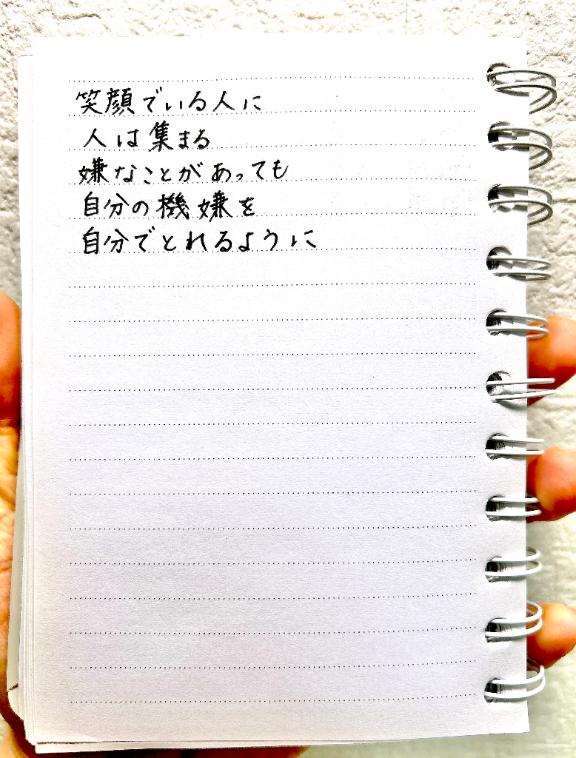 笑顔でいる人に
人は集まる
嫌なことがあっても
自分の機嫌を
自分でとれるように